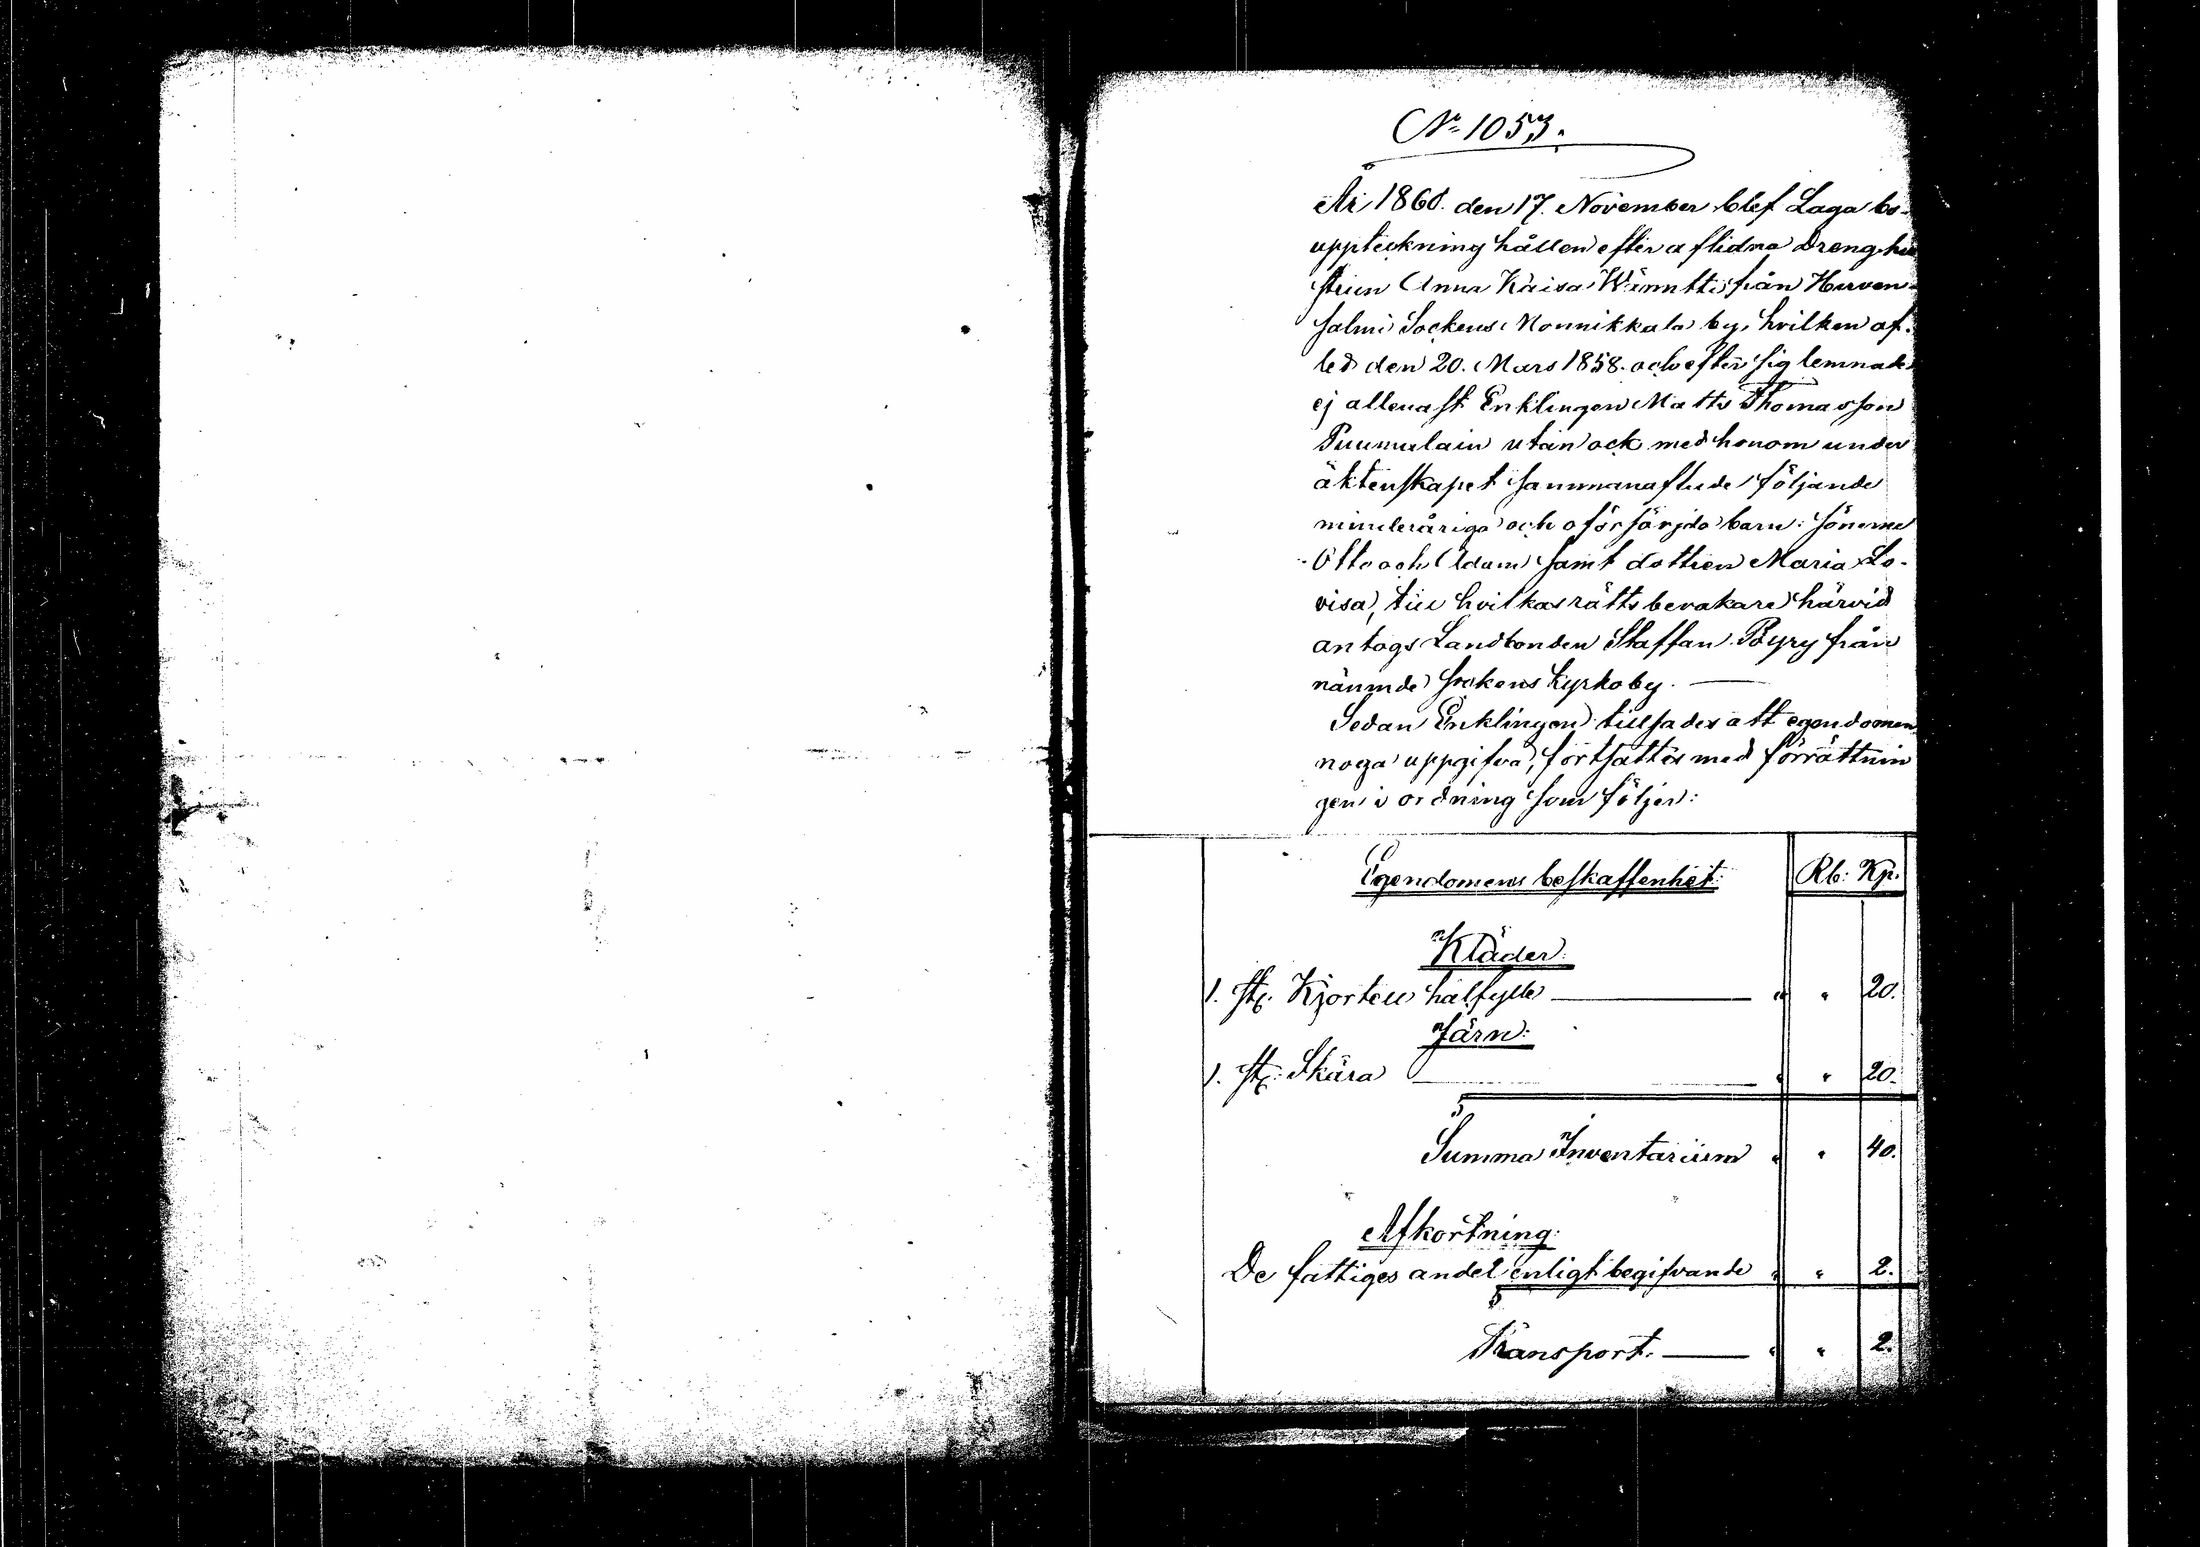 No 1053.
År 1860. den 17. November blef Laga bo-
uppteckning hållen efter aflidna Drenghu
strun Anna Kaisa Wänntti från Hirven-
salmi Sockens Monnikkala by, hvilken af-
led den 20. Mars 1858. och efter sig lemnade
ej allenast Enklingen Matts Thomasson
Puumalain utan ock med honom under
äktenskapet sammanaflade följande
minderåriga och oförsörjda barn: sönerne
Otto och Adam samt dottren Maria Lo-
visa, till hvilkas rätts bevakare härvid
antogs Landbonden Staffan Pöyry från
nämnde sockens Kyrkoby.
Sedan Enklingen tillsades att egendomen
noga uppgifva, fortsattes med förrättnin
gen i ordning som följer:
Egendomens beskaffenhet: Rb: Kp.
Kläder:
1. st. Kjortell halfylle " " 20.
Järn:
1. st. Skära " " 20.
Summa Inventarium " " 40.
Afkortning:
De fattiges andel enligt begifvande " " 2.
Transport. " " 2.